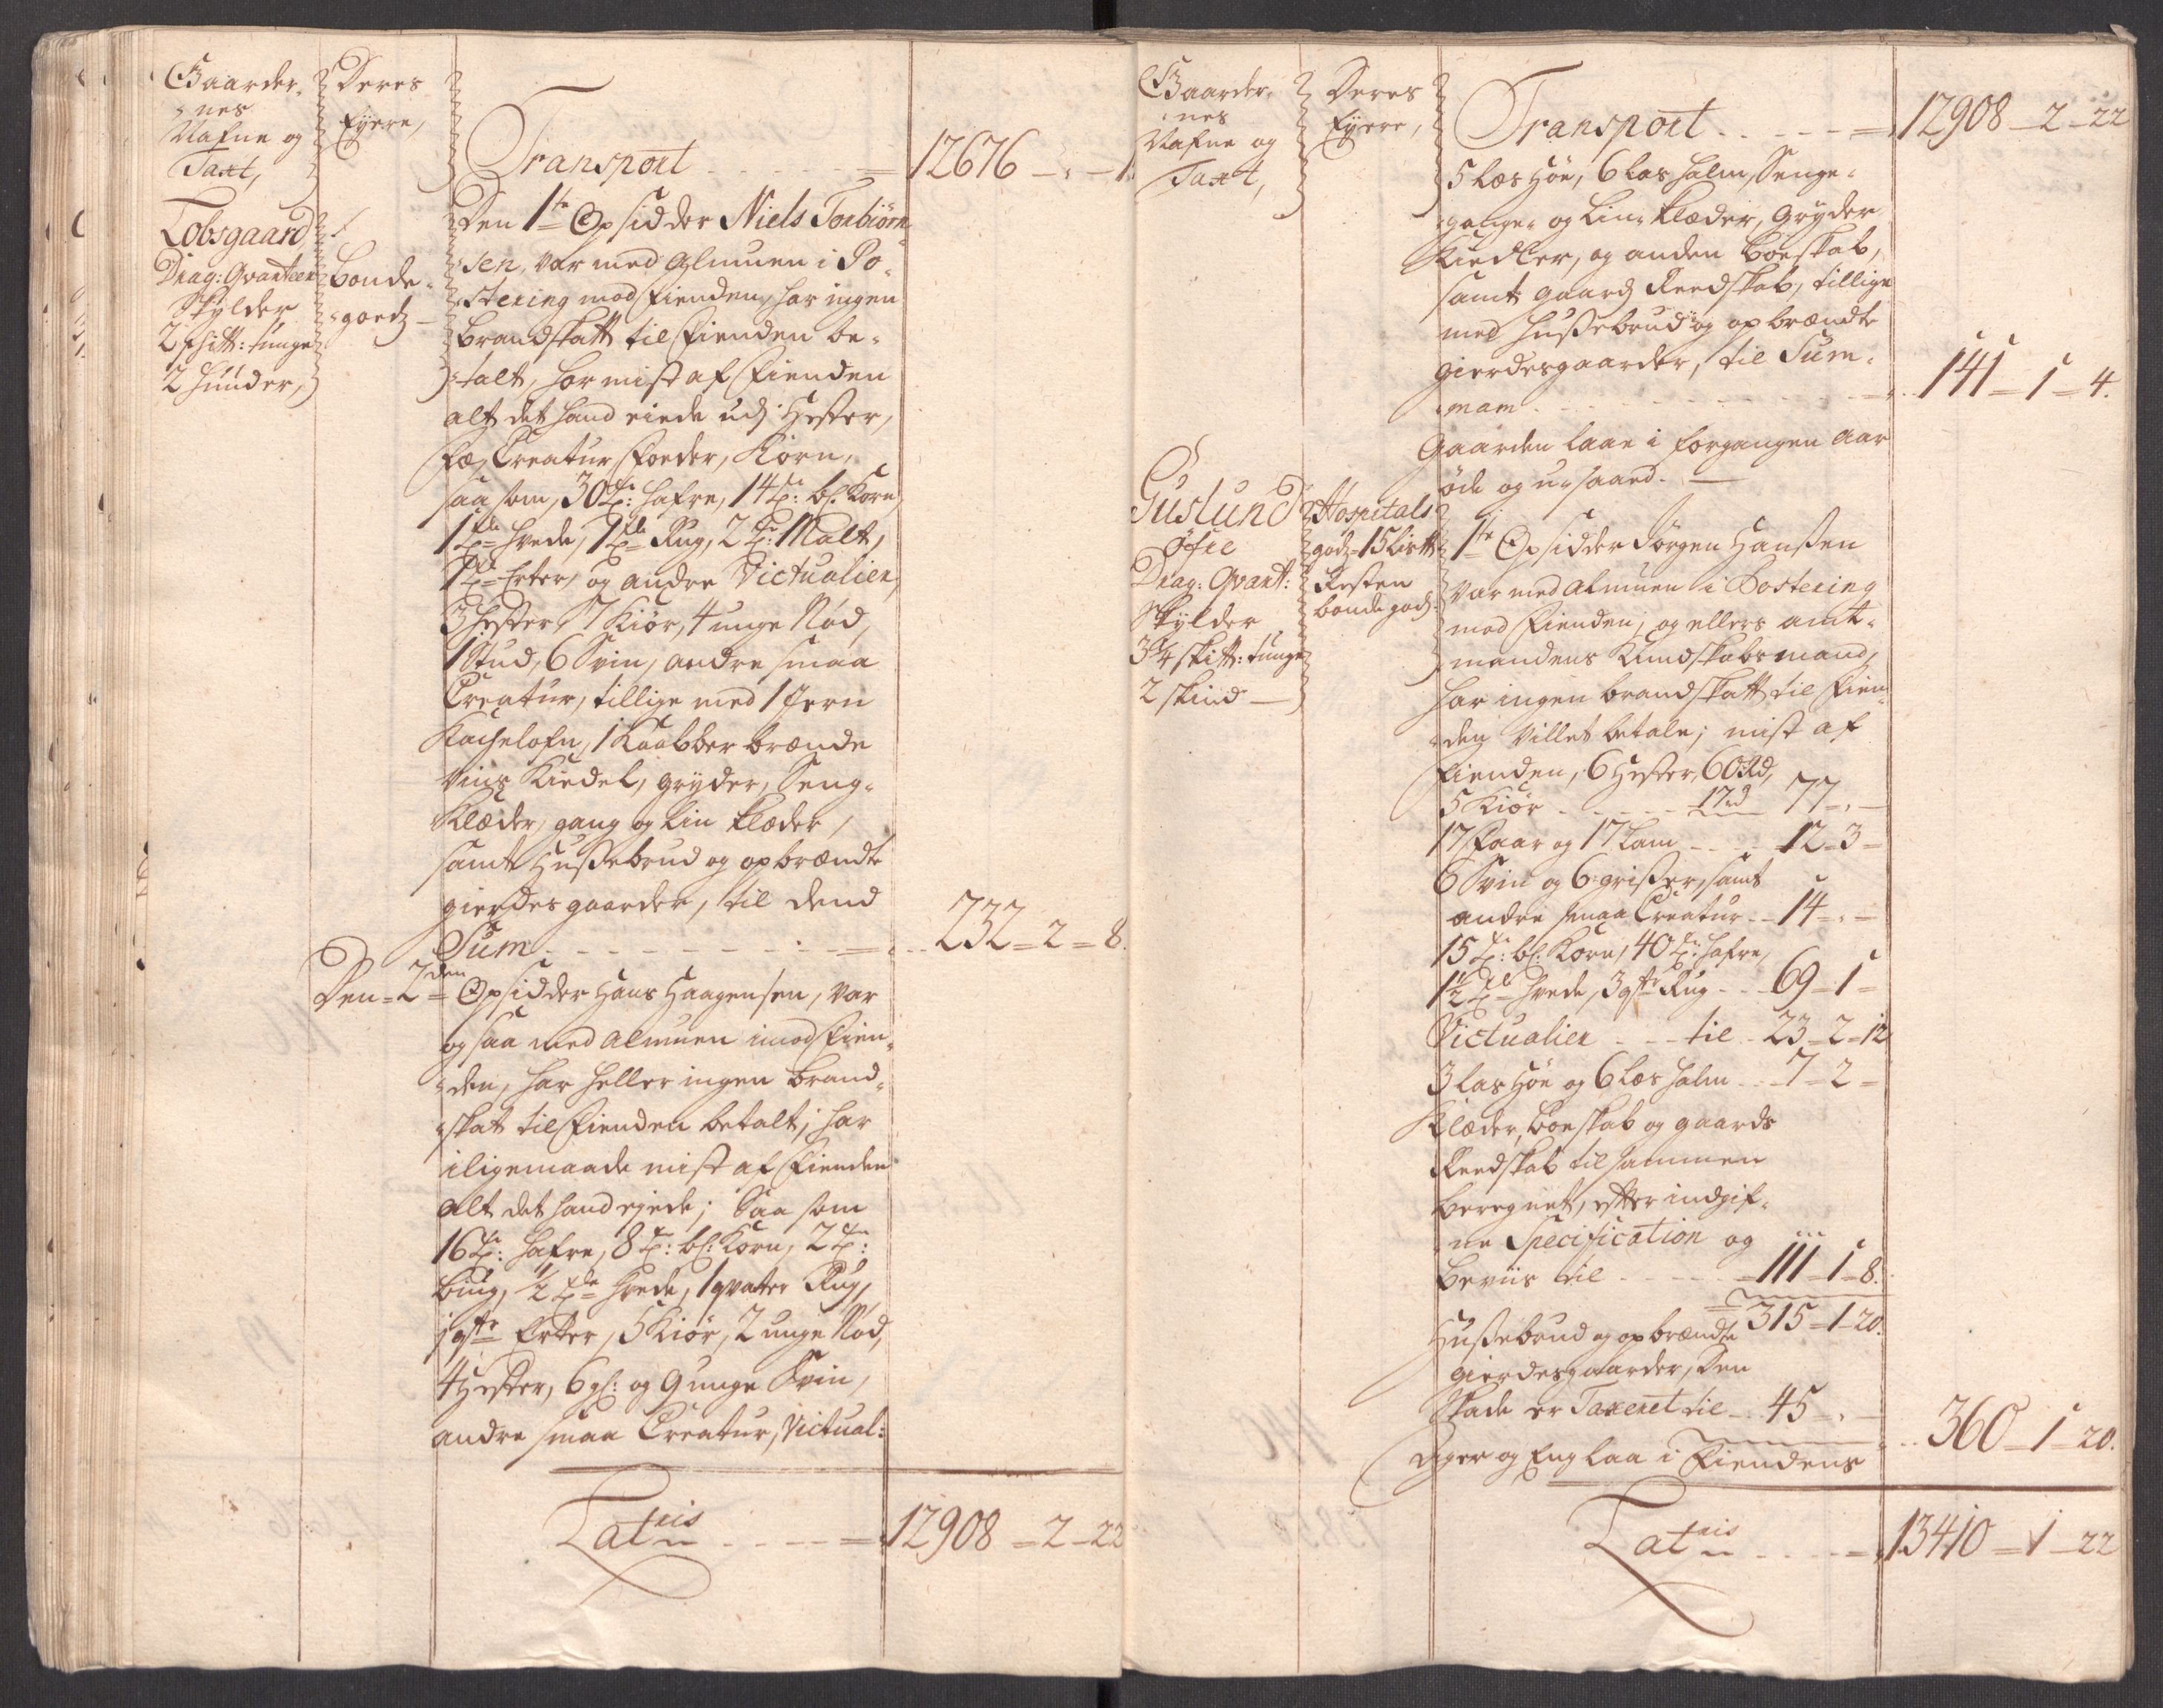 Gaarder-
nes
Nafne og
Taxt,
Deres
Eyere,
Transport - - - - = 12676 - , - 1
Tobsgaard
Diag: Qvarteer
Skylder
2 skitt: tunge
2 Huuder,
Bonde-
goedz -
Den 1te Opsidder Niels Torbiørn-
sen, var med Almuen i Po-
stering mod Fienden, har ingen
Brandskatt til Fienden be-
talt, har mist af Fienden
alt det hand eiede udj Hester,
Fæ, Creatur, Foeder, Korn,
saasom, 30 Tr: Hafre, 14 Tr: bl: Korn,
1 Tde Hvede, 1 Tde Rug, 2 Tr: Malt,
1 Tde Erter, og andre Victualier,
3 Hester, 7 Kiør, 4 unge Nód,
1 Stud, 6 Svin, andre smaa
Creatur, tillige med 1 Jern
Kachelofn, 1 Kaabber brænde
viins Kiedel, gryder, Seng-
Klæder, gang og lin klæder,
samt Hussebrud og opbrændte
gierdesgaarder, til dend
Sum - - - - - - - = 232 = 2 = 8.
Den 2den Opsidder Hans Haagensen, var
og saa med Almuen imod Fien-
den, har heller ingen brand-
skat til Fienden betalt, har
iligemaade mist af Fienden
alt det hand ejede; Saa som
16 Tr: Hafre, 8 Tr: bl: Korn, 2 Tr:
biug, 1/2 Tde Hvede, 1 qvater Rug,
1 qtr Erter, 5 Kiør, 2 unge Nód,
4 Hester, 6 gl: og 9 unge Svin,
andre smaa Creatur, Victual:
Lateris - - - - = 12908 = 2 - 22
Gaarder-
nes
Nafne og
Taxt,
Deres
Eyere,
Transport - - - - = 12908 - 2 - 22
5 Læs Høe, 6 Læs halm, Senge-
gange- og Lin- klæder, Gryder
Kiedler, og anden boeskab,
samt gaardz Reedskab, tillige
med Hussebrud og opbrændte
gierdesgaarder, til Sum-
mam - - - - - - - = 141 = 1 = 4.
Gaarden laae i forgangen aar
øde og u-saaed. -
Guslund
Øfre
Diag: Qvart:
Skylder
3¾ skitt: tunge
2 skind -
Hospitals
godz = 15 List
Resten
bondegodz
1te Opsidder Jørgen Hanssen
var med Almuen i Postering
mod Fienden, og ellers amt-
mandens Kundskabsmand,
har ingen brandskatt til Fien-
den villet betale; mist af
Fienden, 6 Hester, 60 Rd,
5 Kiør - - - - 17 rd 77 - , -
17 Faar og 17 Lam - - - 12 = 3 =
6 Svin og 6 grisser, samt
andre smaa Creatur - - 14 = , =
15 Tr: bl: Korn, 40 Tr: Hafre,
1½ Tde Hvede, 3 qtr Rug - - 69 = 1 =
Victualier - - - til - 23 = 2 = 12
3 Læs Høe og 6 Læs halm - - 7 = 2 =
Klæder, boeskab og gaards
Reedskab tilsammen
beregnet, efter indgif-
ne Specification og
beviis til - - - - = 111 = 1 = 8.
= 315 = 1 - 20.
Hussebrud og opbrændte
gierdesgaarder, den
Skade er Taxeret til - 45 - , -
360 - 1 - 20.
Ager og Eng laa i Fiendens
Lateris - - - = 13410 = 1 - 22